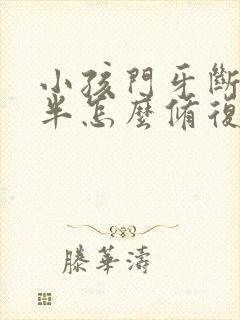 小孩門牙斷
半怎麼脩復
滕華濤